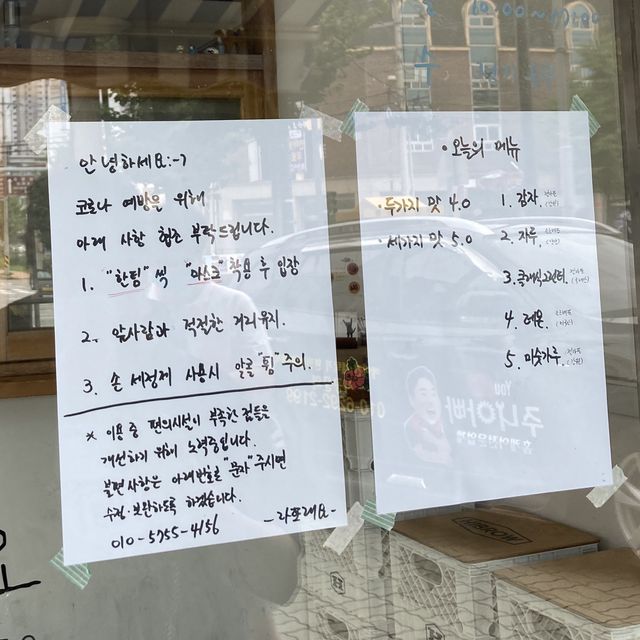 안녕하세요:-)
코로나 예방을 위해
아래 사항 협조 부탁드립니다.
1. "한팀" 씩 "마스크" 착용 후 입장
2. 앞사람과 적절한 거리유지.
3. 손 세정제 사용시 알콜 "튐" 주의.
* 이용 중 편의시설이 부족한 점들은
개선하기 위해 노력중입니다.
불편사항은 아래번호로 "문자" 주시면
수정·보완하도록 하겠습니다.
010-5755-4156 -라포레요-
•오늘의 메뉴
•두가지 맛 4.0
•세가지 맛 5.0
1. 감자.
2. 자두.
3. 클래식그린티.
4. 레몬.
5. 미숫가루.
You
주나아빠
10:00~17:00